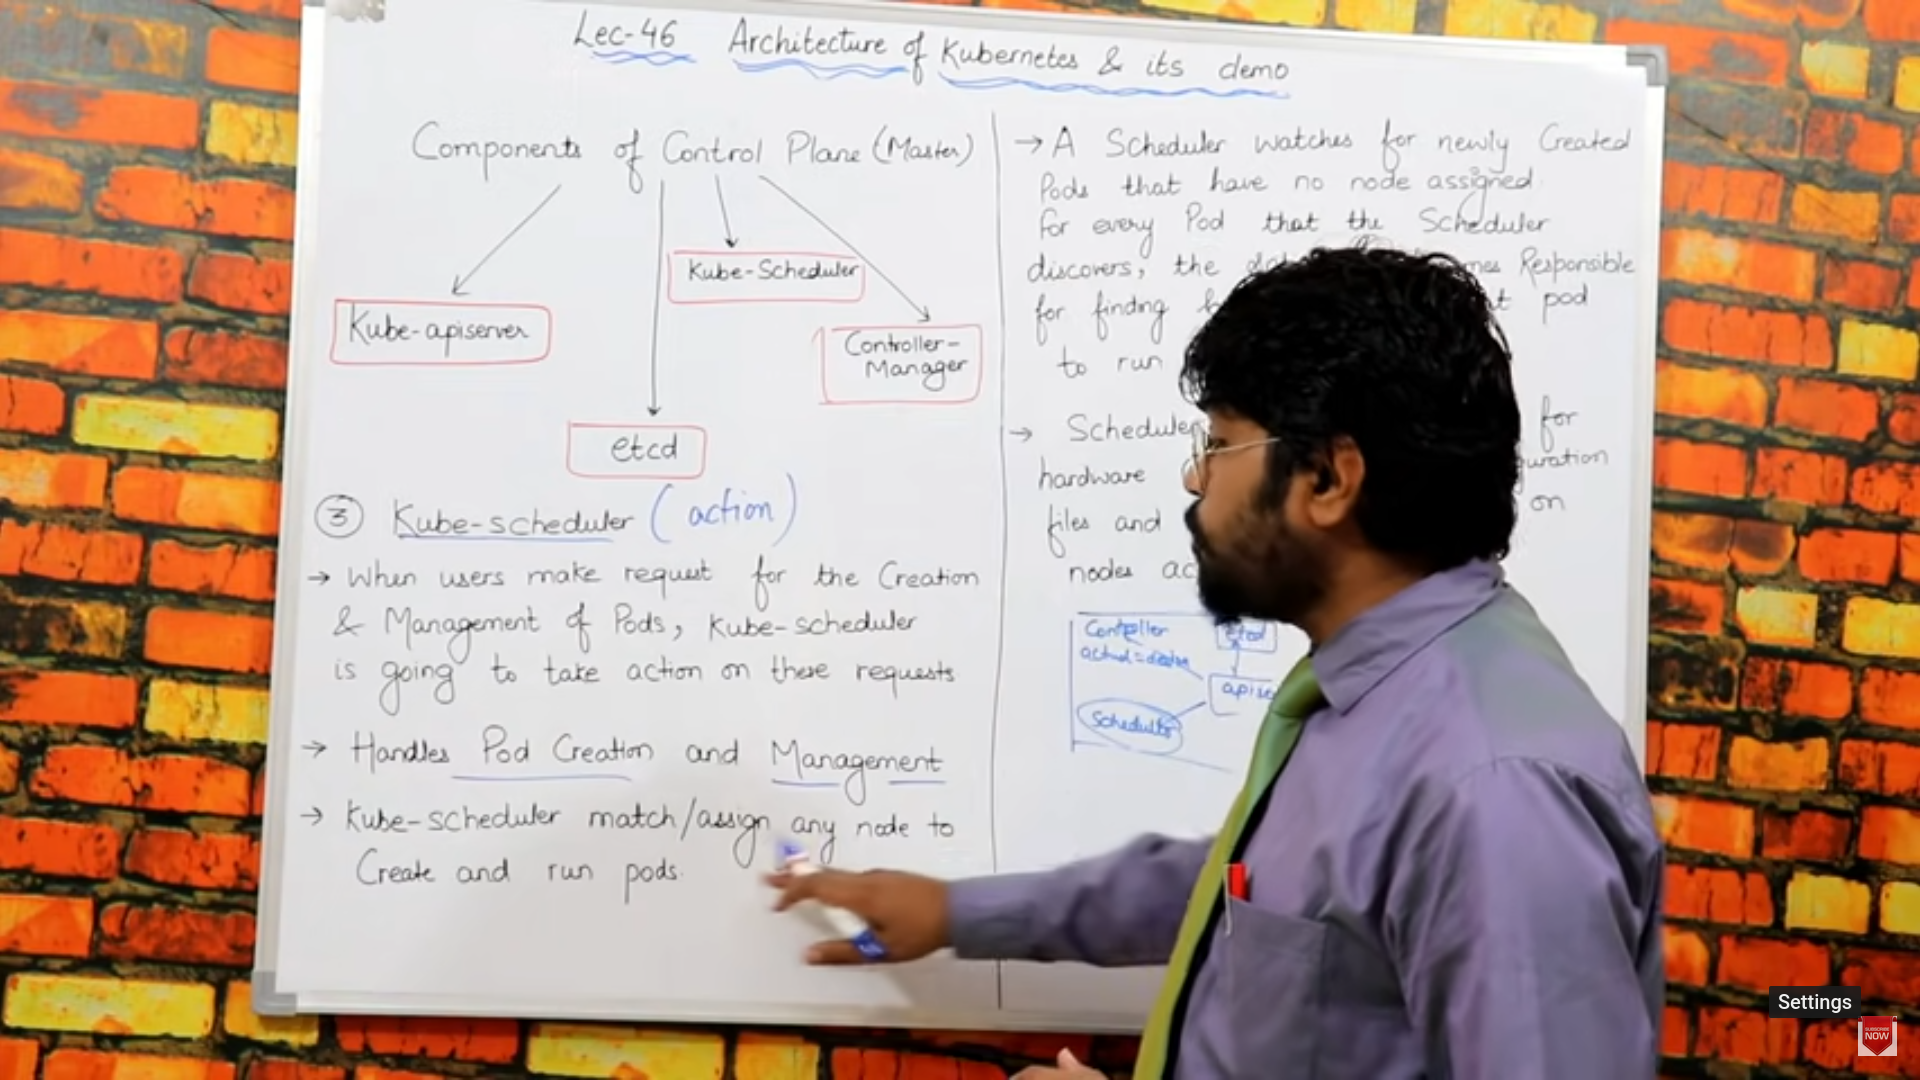 Lec-46 Architecture of Kubernetes & its demo
Components of Control Plane (Master)
Kube-apiserver
etcd
Kube-Scheduler
Controller-
Manager
③ Kube-scheduler (action)
→ When users make request for the Creation
& Management of Pods, Kube-scheduler
is going to take action on these requests
→ Handles Pod Creation and Management
→ Kube-scheduler match/assign any node to
Create and run pods.
→ A Scheduler watches for newly Created
Pods that have no node assigned.
for every Pod that the Scheduler
discovers, the Responsible
for finding pod
to run
→ Scheduler for
hardware
files and on
nodes
Controller
etcd
Scheduler
Settings
SUBSCRIBE
NOW